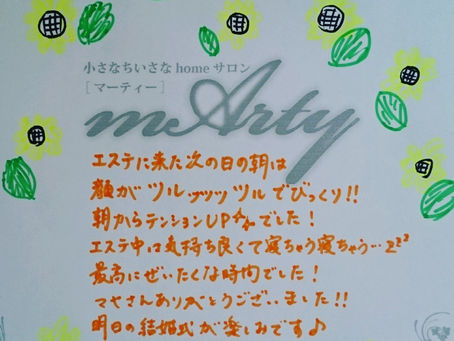 小さなちいさなhomeサロン
［マーティー］
mArty
エステに来た次の日の朝は
顔がツルッッッツルでびっくり!!
朝からテンションUPでした！
エステ中は気持ち良くて寝ちゃう寝ちゃう…zzz
最高にぜいたくな時間でした！
マヤさんありがとうございました!!
明日の結婚式が楽しみです♪